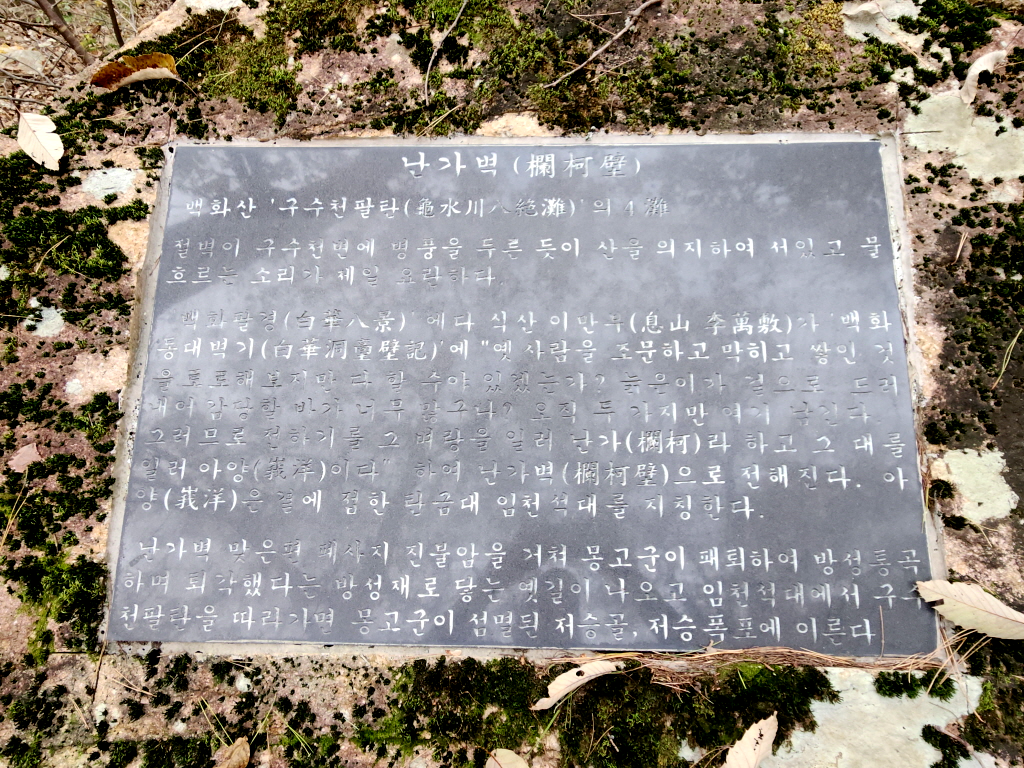 난가벽(欄柯壁)
백화산 '구수천팔탄(龜水川八絶灘)'의 4灘
절벽이 구수천변에 병풍을 두른 듯이 산을 의지하여 서있고 물
흐르는 소리가 제일 요란하다.
'백화팔경(白華八景)'에다 식산 이만부(息山 李萬敷)가 '백화
동대벽기(白華洞臺壁記)'에 "옛 사람을 조문하고 막히고 쌓인 것
을 토로해보지만 다 할 수야 있겠는가? 늙은이가 겉으로 드러
내어 감당할 바가 너무 많구나? 오직 두 가지만 여기 남긴다.
그러므로 전하기를 그 벼랑을 일러 난가(欄柯)라 하고 그 대를
일러 아양(峩洋)이다" 하여 난가벽(欄柯壁)으로 전해진다. 아
양(峩洋)은 절에 접한 탄금대 임천석대를 지칭한다.
난가벽 맞은편 폐사지 진불암을 거쳐 몽고군이 패퇴하여 방성통곡
하며 퇴각했다는 방성재로 닿는 옛길이 나오고 임천석대에서 구수
천팔탄을 따라가면 몽고군이 섬멸된 저승골, 저승폭포에 이른다